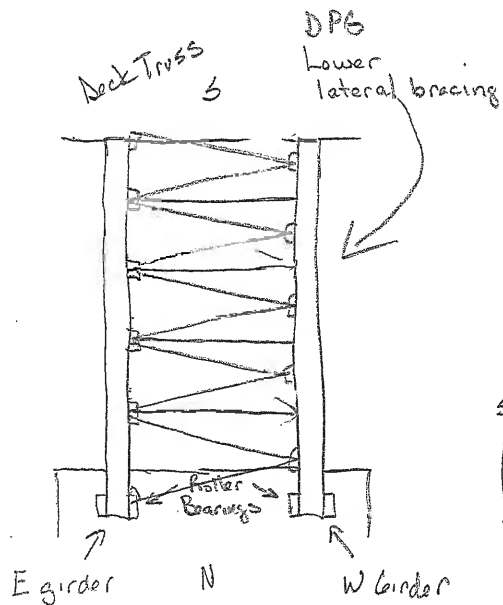 Deck Truss
S
DPG
Lower
lateral bracing
Roller
Bearings
E girder
N
W Girder